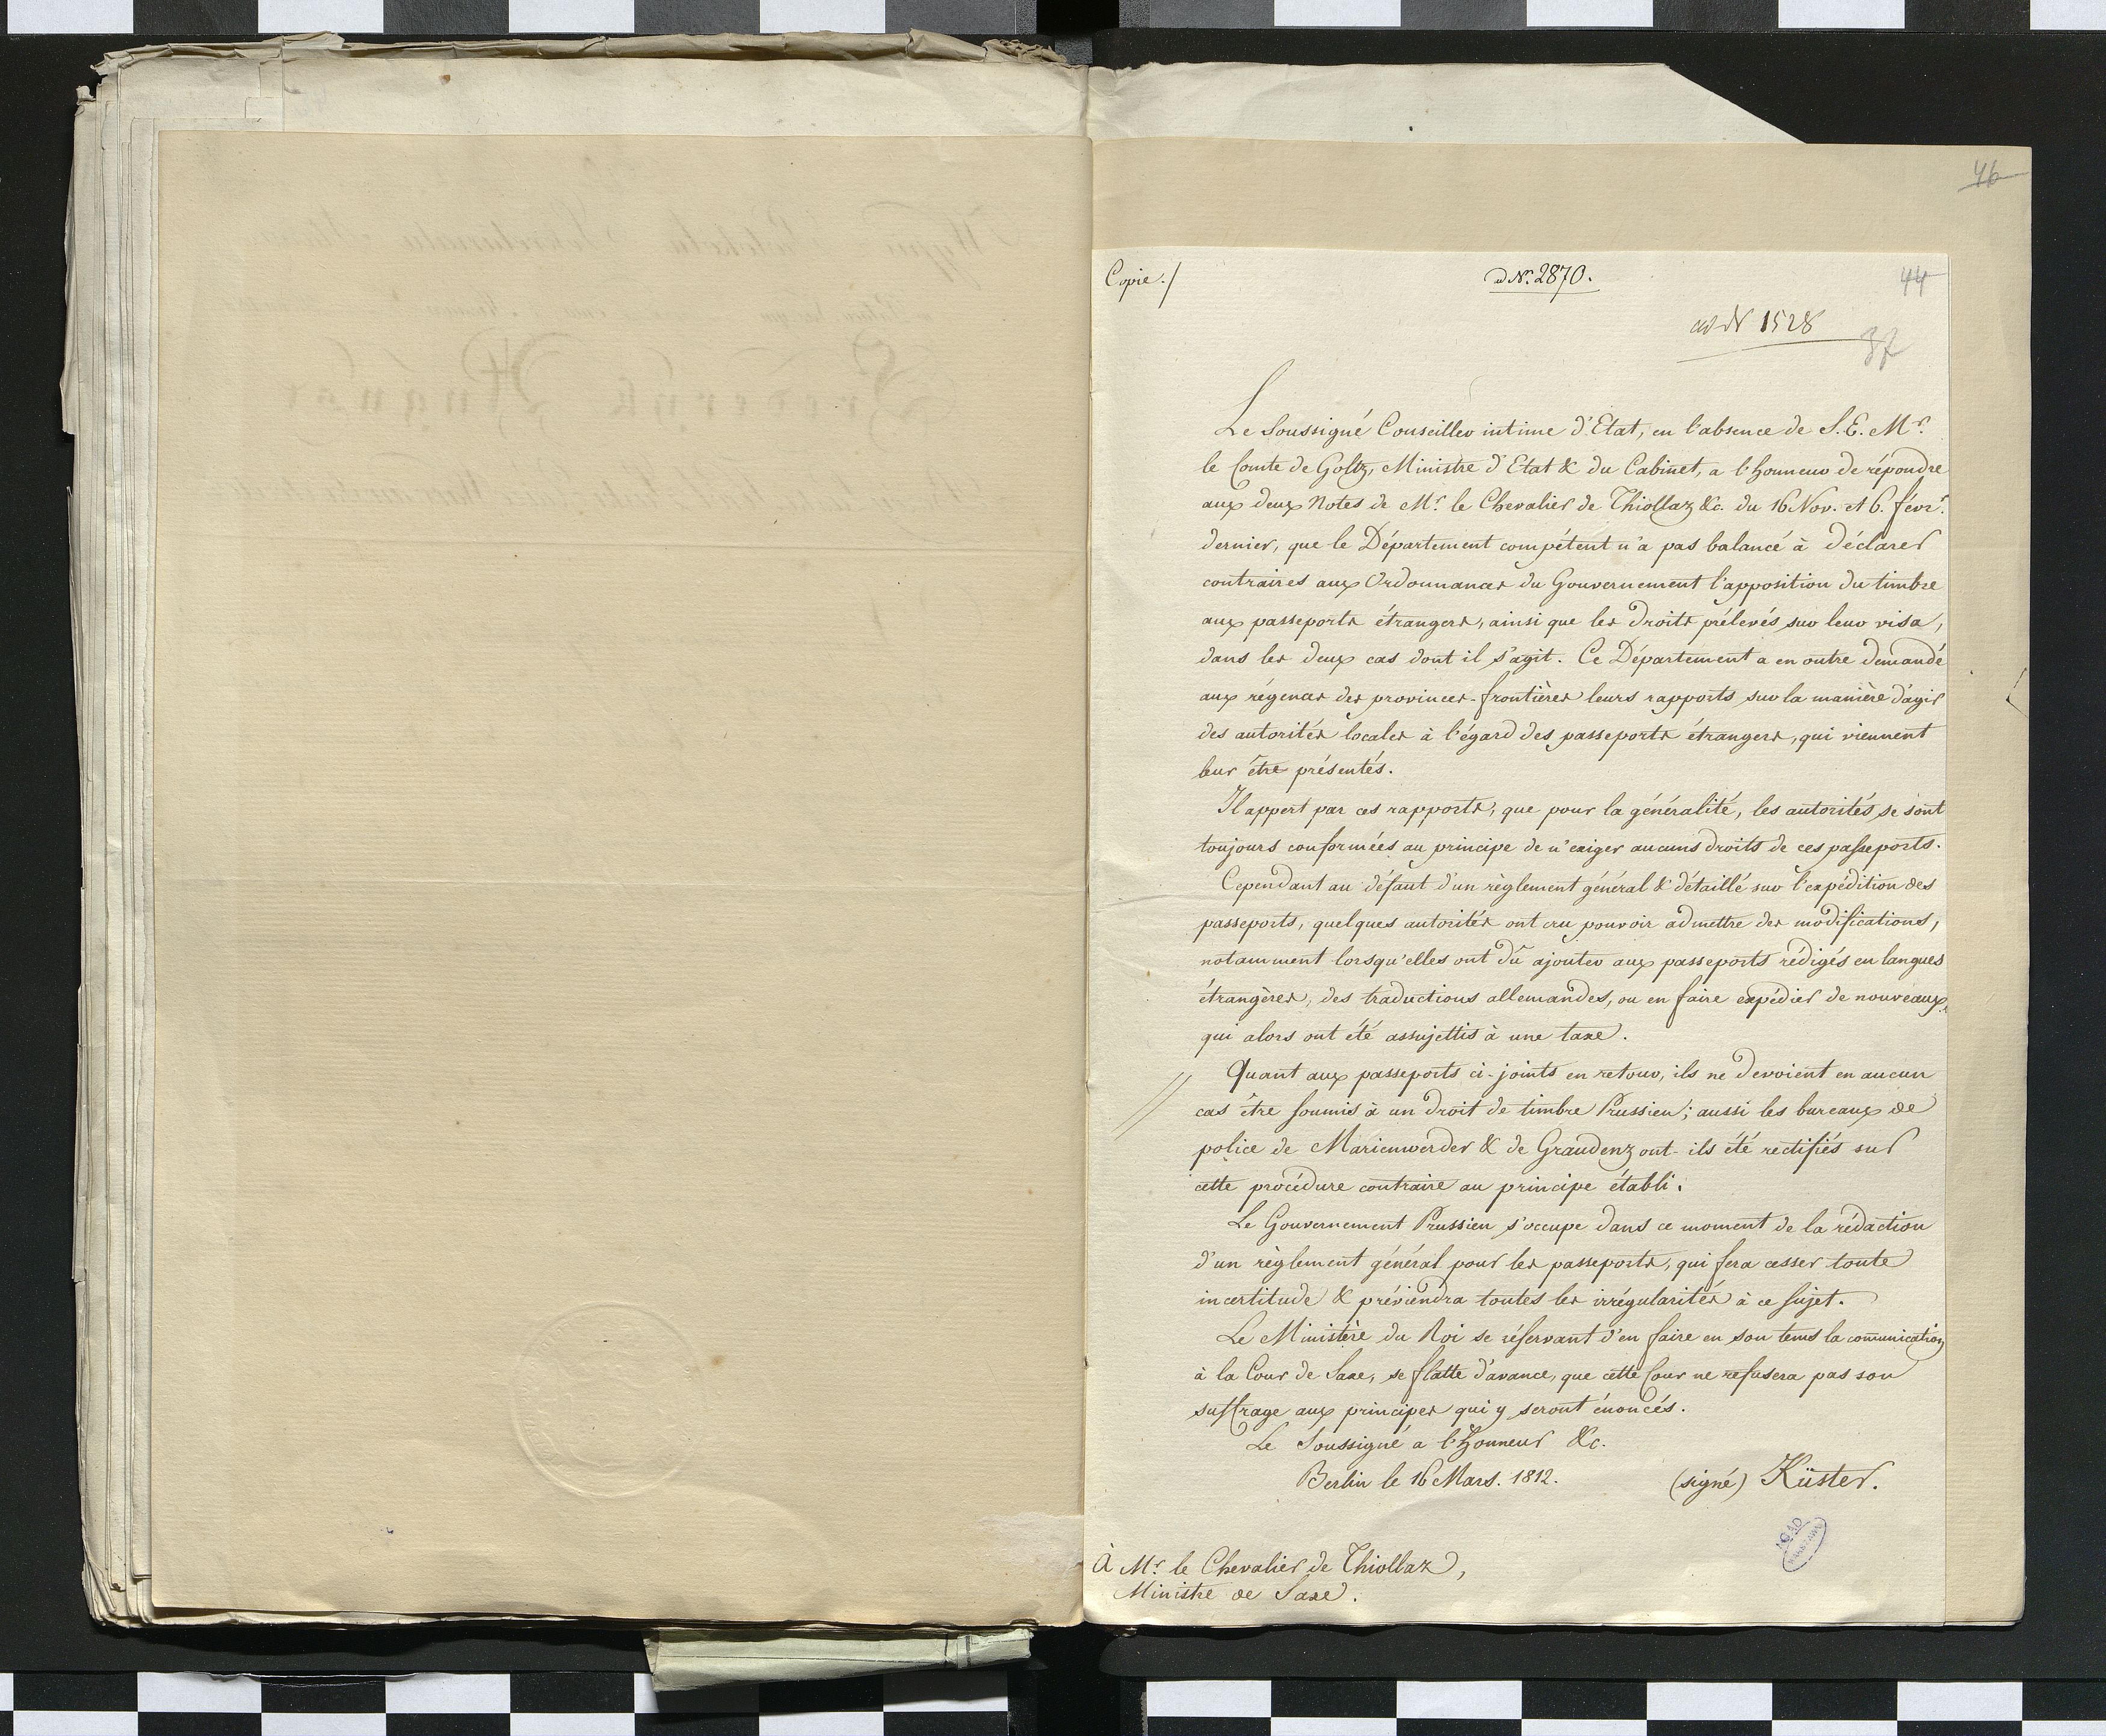 46
Copie./
N. 2870.
44
ad N 1528
37
Le Soussigné Conseiller intime d'Etat, en l'absence de S. E. Mr.
le Comte de Goltz, Ministre d'Etat & du Cabinet, a l'honneur de répondre
aux deux Notes de Mr. le Chevalier de Thiollaz &c. du 16 Nov. et 6. févr.
dernier, que le Département compétent n'a pas balancé à déclarer
contraires aux Ordonnances du Gouvernement l'apposition du timbre
aux passeports étrangers, ainsi que les droits prélevés sur leur visa,
dans les deux cas dont il s'agit. Ce Département a en outre demandé
aux régences des provinces-frontières leurs rapports sur la manière d'agir
des autorités locales à l'égard des passeports étrangers, qui viennent
leur être présentés.
Il appert par ces rapports, que pour la généralité, les autorités se sont
toujours conformées au principe de n'exiger aucuns droits de ces passeports.
Cependant au défaut d'un règlement général & détaillé sur l'expédition des
passeports, quelques autorités ont cru pouvoir admettre des modifications,
notamment lorsqu'elles ont dû ajouter aux passeports rédigés en langues
étrangères, des traductions allemandes, ou en faire expédier de nouveaux,
qui alors ont été assujettis à une taxe.
Quant aux passeports ci-joints en retour, ils ne devoient en aucun
cas être soumis à un droit de timbre Prussien; aussi les bureaux de
police de Marienwerder & de Graudenz ont-ils été rectifiés sur
cette procédure contraire au principe établi.
Le Gouvernement Prussien s'occupe dans ce moment de la rédaction
d'un règlement général pour les passeports, qui fera cesser toute
incertitude & préviendra toutes les irrégularités à ce sujet.
Le Ministère du Roi se réservant d'en faire en son tems la comunication
à la Cour de Saxe, se flatte d'avance, que cette Cour ne refusera pas son
suffrage aux principes qui y seront énoncés.
Le Soussigné a l'honneur &c.
Berlin le 16 Mars. 1812. (signé) Küster.
AGAD
À Mr. le Chevalier de Thiollaz,
Ministre de Saxe.